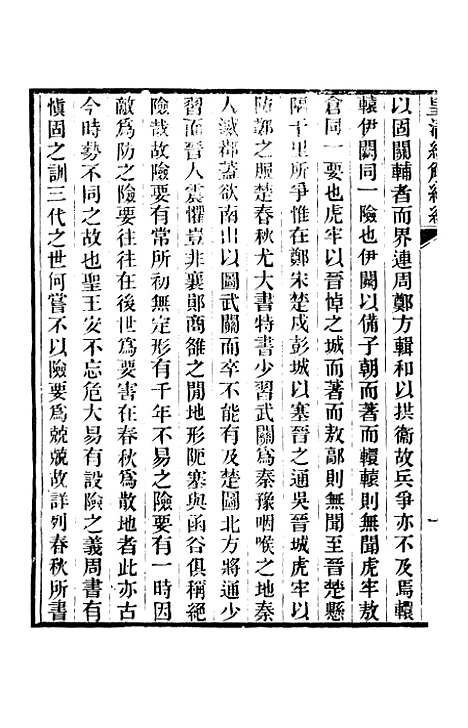 皇清經解續編
以固關輔者而界連周鄭方輯和以拱衞故兵爭亦不及焉轘
轅伊闕同一險也伊闕以備子朝而著而轘轅則無聞虎牢敖
倉同一要也虎牢以晉悼之城而著而敖鄗則無聞至晉楚懸
隔千里所爭惟在鄭宋楚戍彭城以塞晉之通吳晉城虎牢以
防鄭之服楚春秋尤大書特書少習武關爲秦豫咽喉之地秦
人滅鄀蓋欲南出以圖武關而卒不能有及楚圖北方將通少
習而晉人震懼豈非襄鄖商雒之閒地形阨塞與函谷俱稱絕
險哉故險要有常所初無定形有千年不易之險要有一時因
敵爲防之險要往往在後世爲要害在春秋爲散地者此亦古
今時勢不同之故也聖王安不忘危大易有設險之義周書有
愼固之訓三代之世何嘗不以險要爲兢兢故詳列春秋所書